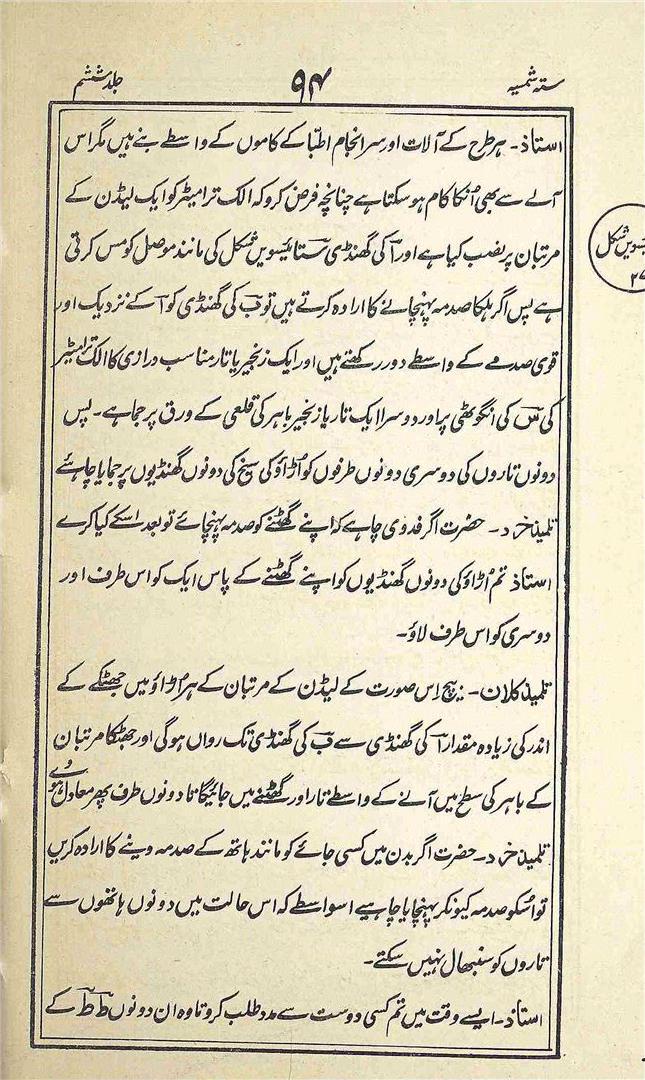 ستہ شمسیہ ۹۴ جلد ششم
استاذ۔ ہر طرح کے آلات اور سر انجام اطبّا کے کاموں کے واسطے بنے ہیں مگر اس
آلے سے بھی اُنکا کام ہو سکتا ہے چنانچہ فرض کرو کہ الک ترامیٹر کو ایک لیڈن کے
مرتبان پر نصب کیا ہے اور آ کی گھنڈی ستائیسویں شکل کی مانند موصل کو مس کرتی
ہے پس اگر ہلکا صدمہ پہنچانے کا ارادہ کرتے ہیں تو ب کی گھنڈی کو آ کے نزدیک اور
قوی صدمے کے واسطے دور رکھتے ہیں اور ایک زنجیر یا تار مناسب درازی کا الک ترامیٹر
کی س کی انگوٹھی پر اور دوسرا ایک تار یا زنجیر باہر کی قلعی کے ورق پر جما ہے۔ پس
دونوں تاروں کی دوسری دونوں طرفوں کو اُڑاؤ کی سیخ کی دونوں گھنڈیوں پر جمایا چاہئے
تلمیذ خرد۔ حضرت اگر فدوی چاہے کہ اپنے گھٹنے کو صدمہ پہنچائے تو بعد اسکے کیا کرے
استاذ تم اُڑاؤ کی دونوں گھنڈیوں کو اپنے گھٹنے کے پاس ایک کو اس طرف اور
دوسری کو اس طرف لاؤ۔
تلمیذ کلان۔ بیچ اس صورت کے لیڈن کے مرتبان کے ہر اُڑاؤ میں جھٹکے کے
اندر کی زیادہ مقدار آ کی گھنڈی سے ب کی گھنڈی تک رواں ہوگی اور جھٹکا مرتبان
کے باہر کی سطح میں آنے کے واسطے تار اور گھٹنے میں جائیگا تا دونوں طرف پھر معادل ہووے
تلمیذ خرد۔ حضرت اگر بدن میں کسی جائے کو مانند ہاتھ کے صدمہ دینے کا ارادہ کریں
تو اُسکو صدمہ کیونکر پہنچایا چاہیے اسواسطے کہ اس حالت میں دونوں ہاتھوں سے
تاروں کو سنبھال نہیں سکتے۔
استاذ۔ ایسے وقت میں تم کسی دوست سے مدد طلب کرو تا وہ ان دونوں ط ط کے
شکل